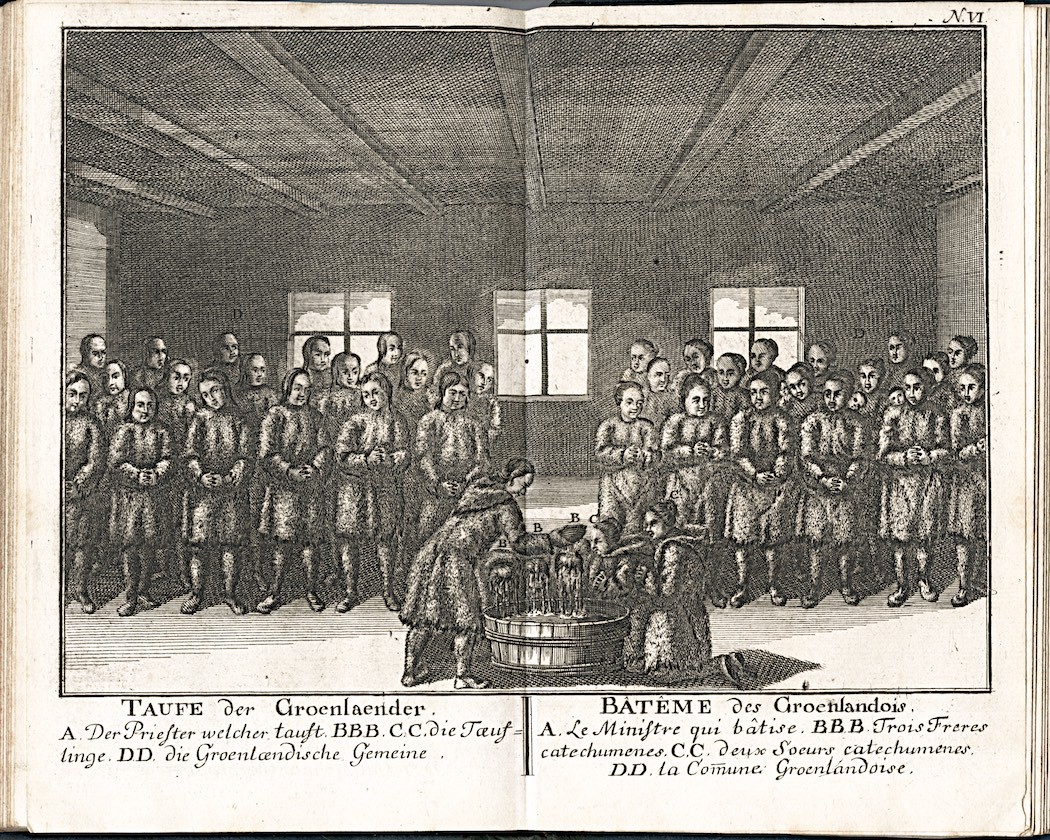 N. VI.
D
D
C
B
B
C
B
TAUFE der Groenlaender.
A. Der Prieſter welcher tauft. BBB. C.C. die Tœuf=
linge. DD. die Groenlœndiſche Gemeine.
BÂTÊME des Groenlandois.
A. Le Miniſtre qui bâtise. BBB. Trois Freres
catechumenes. C.C. deux Soeurs catechumenes.
D.D. la Com̄une Groenlándoise.